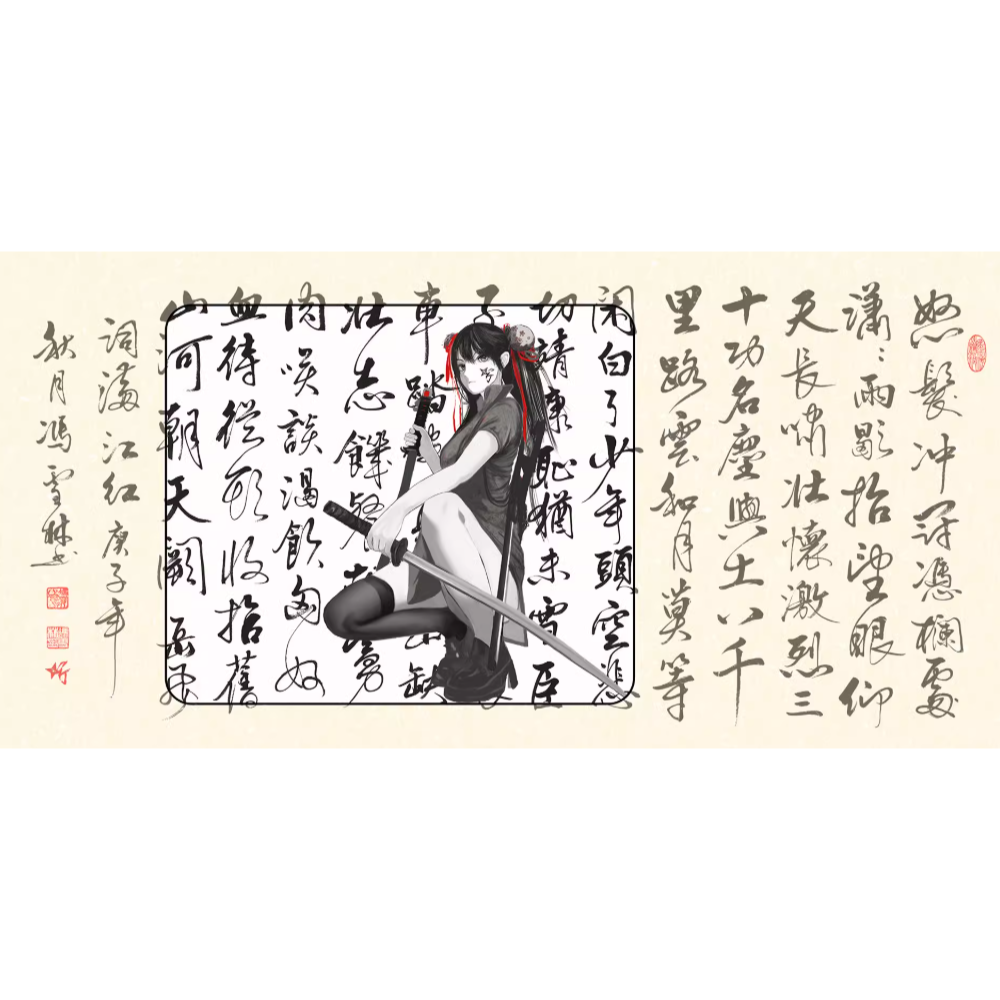 怒髮冲冠憑欄處
瀟〻雨歇抬望眼仰
天長嘯壯懷激烈三
十功名塵與土八千
里路雲和月莫等
闲白了少年頭空悲
切靖康恥猶未雪臣
子
車踏山缺
壯志饑餐虜
肉笑談渴飲匈奴
血待從頭收拾舊
山河朝天闕岳飛
詞滿江紅庚子年
秋月馮雪林書